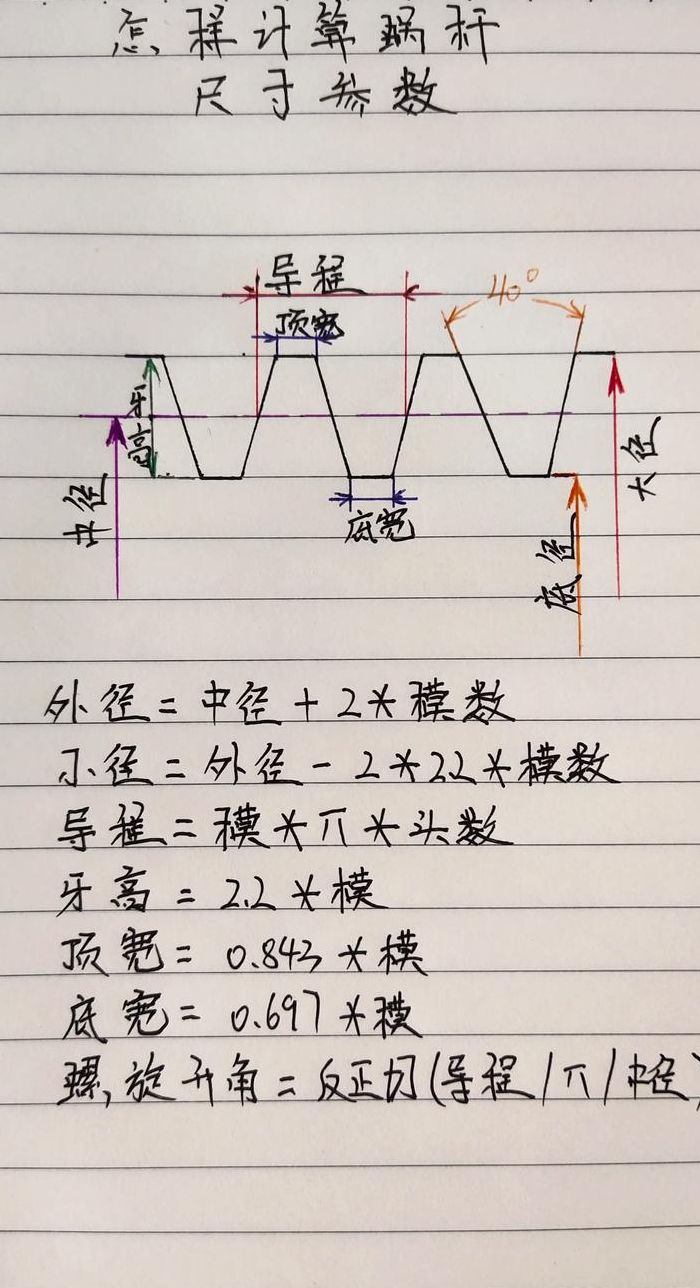 怎样计算蜗杆
尺寸参数
导程
40°
顶宽
牙高
中径
大径
底宽
底径
外径=中径+2*模数
小径=外径-2*2.2*模数
导程=模*π*头数
牙高=2.2*模
顶宽=0.843*模
底宽=0.697*模
螺旋升角=反正切(导程/π/中径)